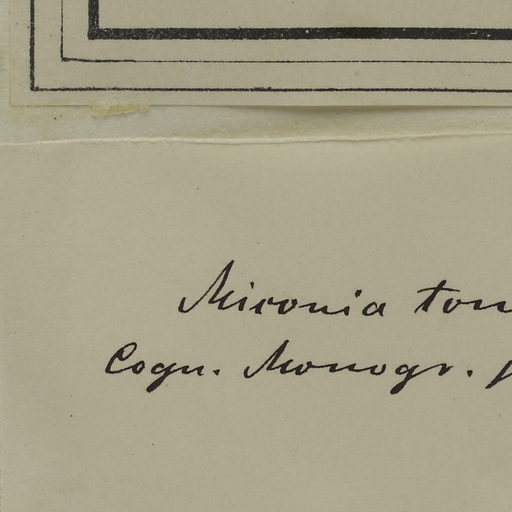 Miconia
Cogn. Monogr.